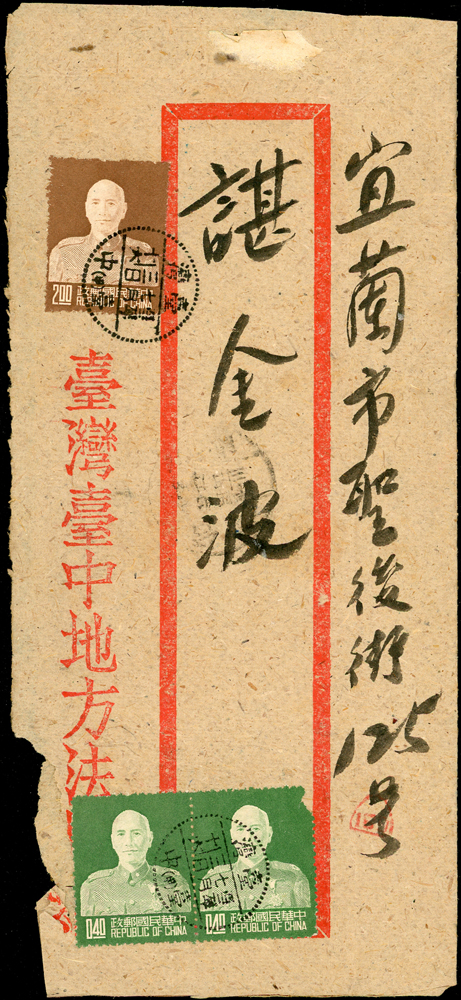 宜蘭市聖後街125号
諶金波
臺灣臺中地方法
2.00
中華民國郵政
REPUBLIC OF CHINA
臺灣
臺中
0.40
中華民國郵政
REPUBLIC OF CHINA
0.40
中華民國郵政
REPUBLIC OF CHINA
臺灣
臺中